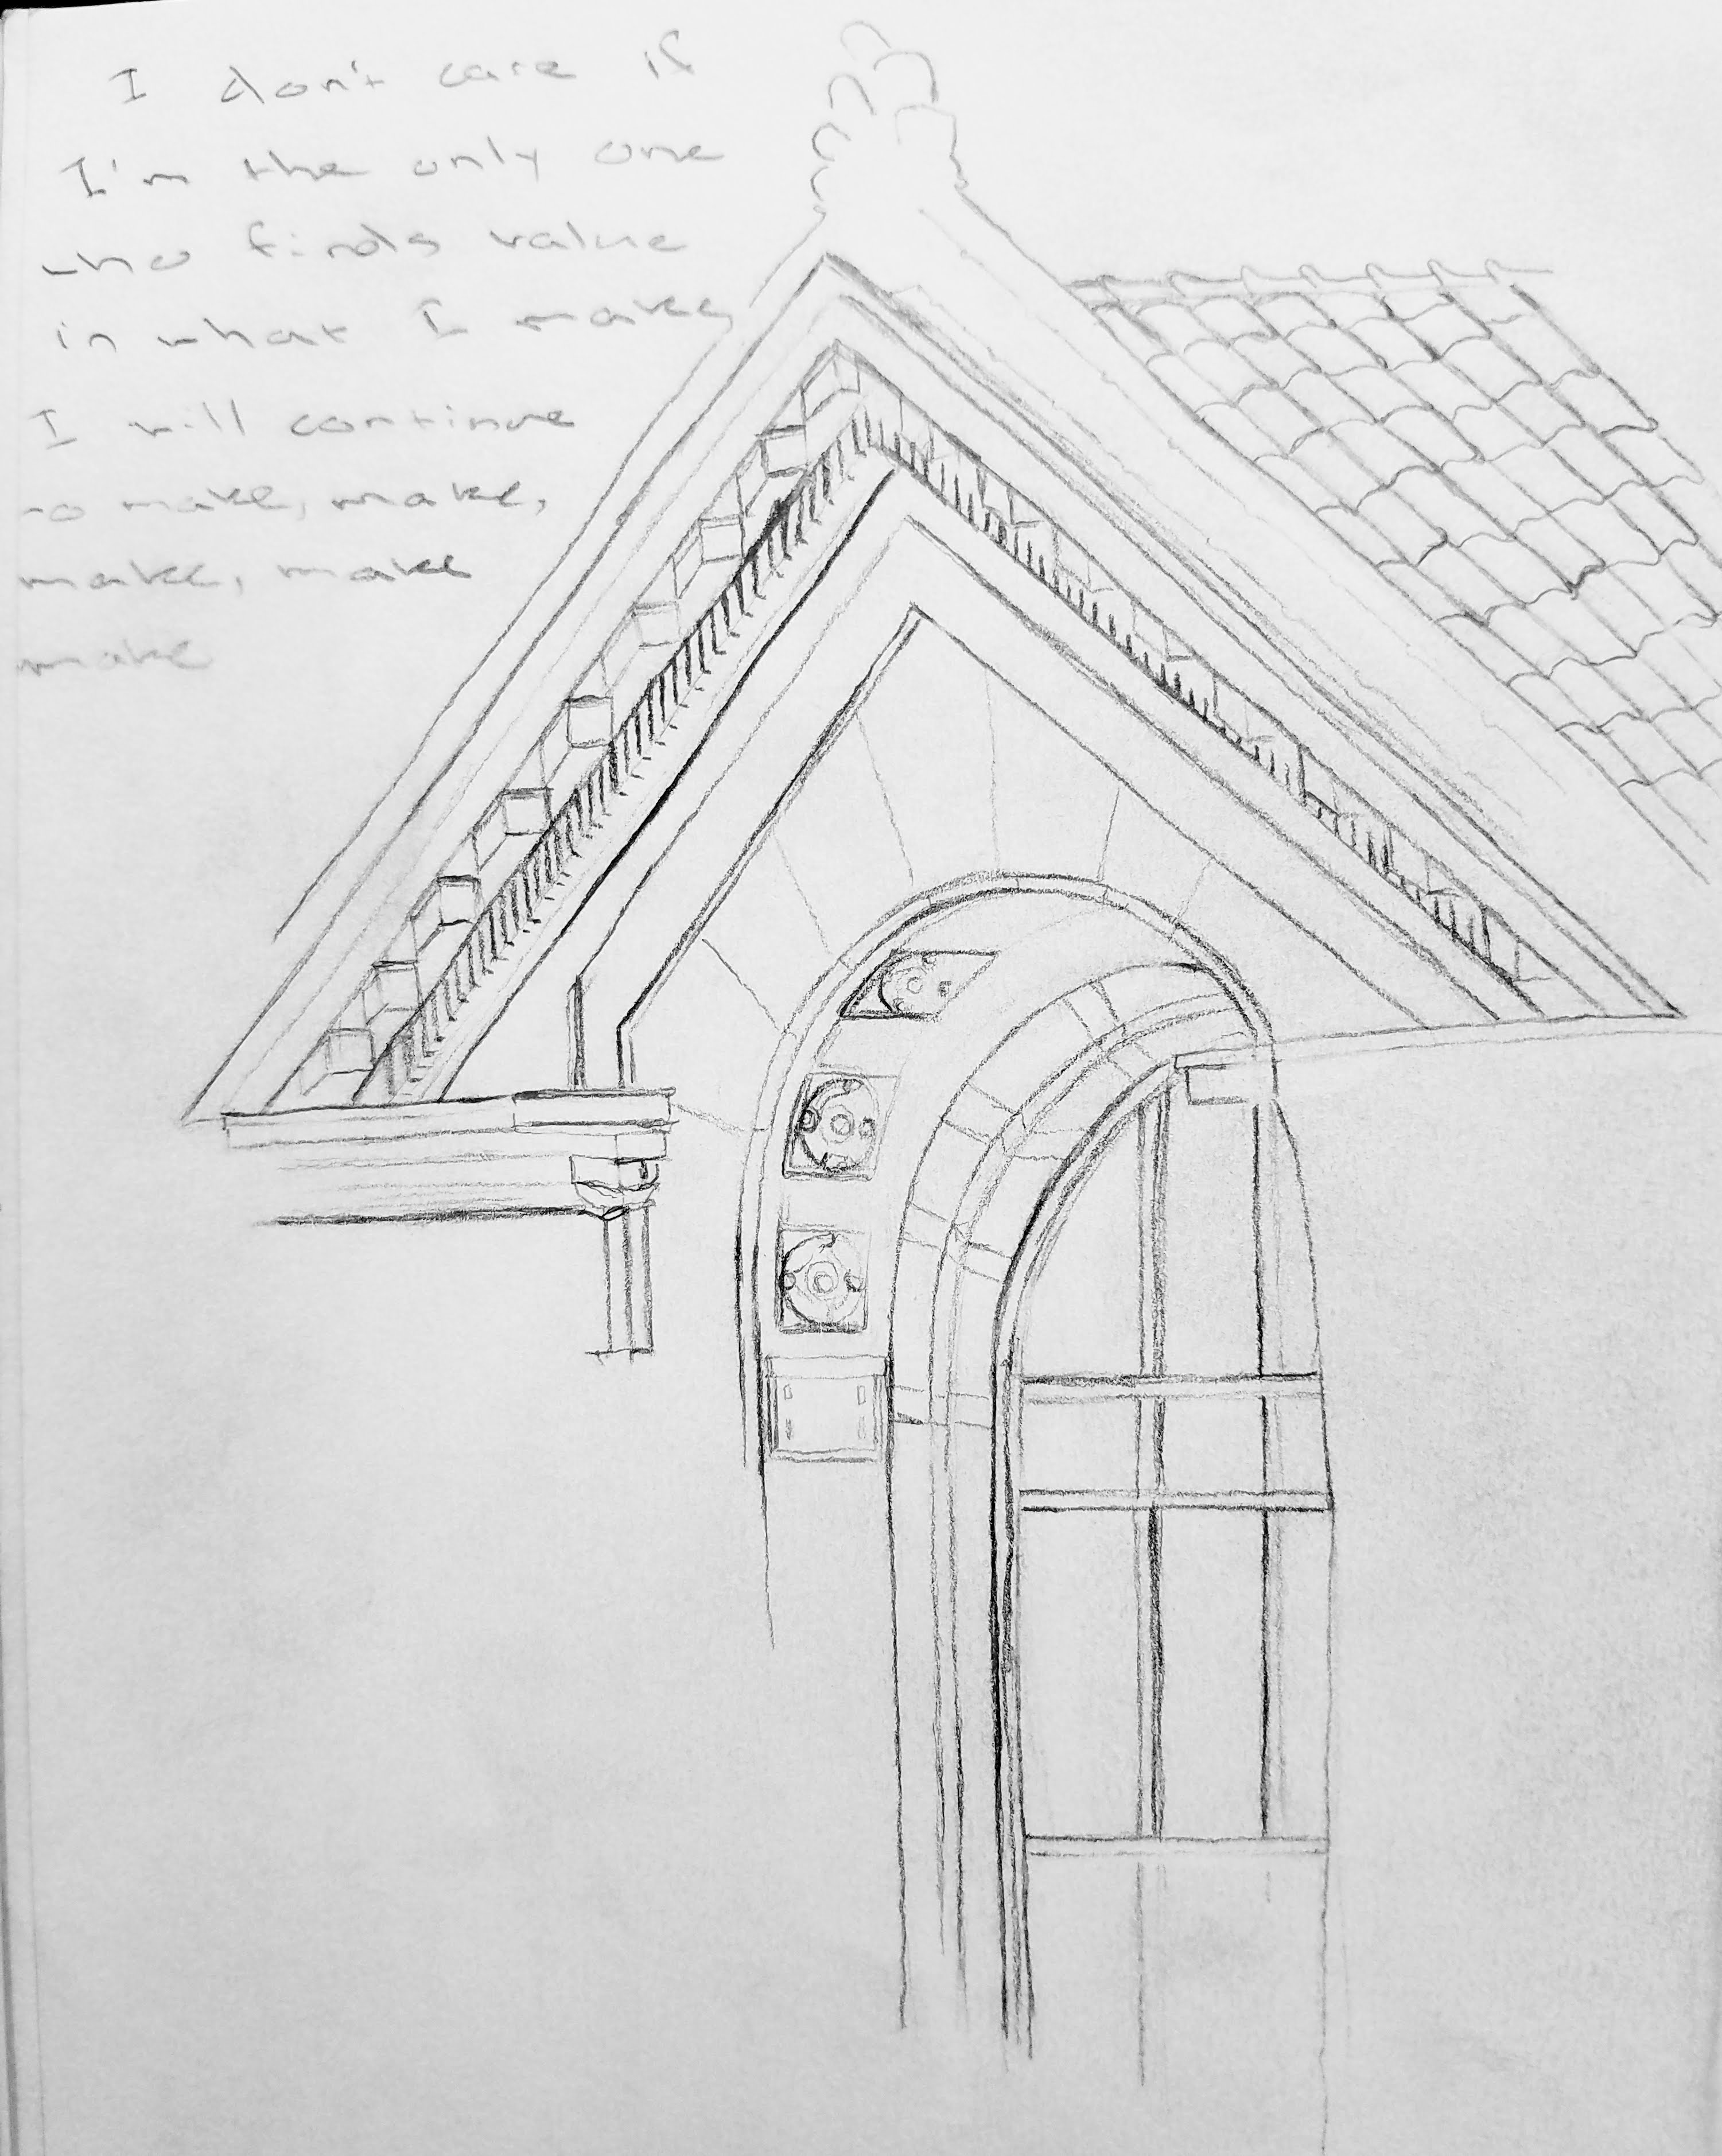 I don't care if
I'm the only one
who finds value
in what I make,
I will continue
to make, make,
make, make
make